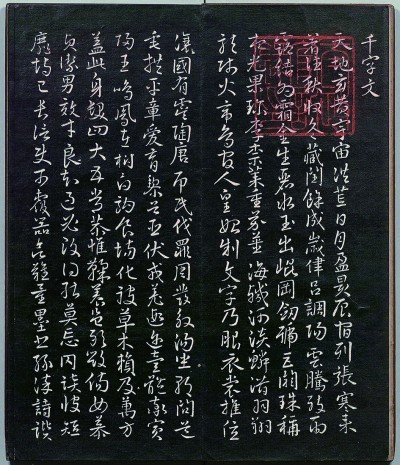 千字文
天地玄黃宇宙洪荒日月盈昃辰宿列張寒來
暑往秋收冬藏閏餘成歲律呂調陽雲騰致雨
露結為霜金生麗水玉出崐岡劔號巨闕珠稱
夜光果珍李柰菜重芥薑海醎河淡鱗潛羽翔
龍師火帝鳥官人皇始制文字乃服衣裳推位
讓國有虞陶唐弔民伐罪周發殷湯坐朝問道
垂拱平章愛育黎首臣伏戎羌遐邇壹體率賓
歸王鳴鳳在樹白駒食場化被草木賴及萬方
蓋此身髮四大五常恭惟鞠養豈敢毀傷女慕
貞潔男效才良知過必改得能莫忘罔談彼短
靡恃己長信使可覆器欲難量墨悲絲染詩讚